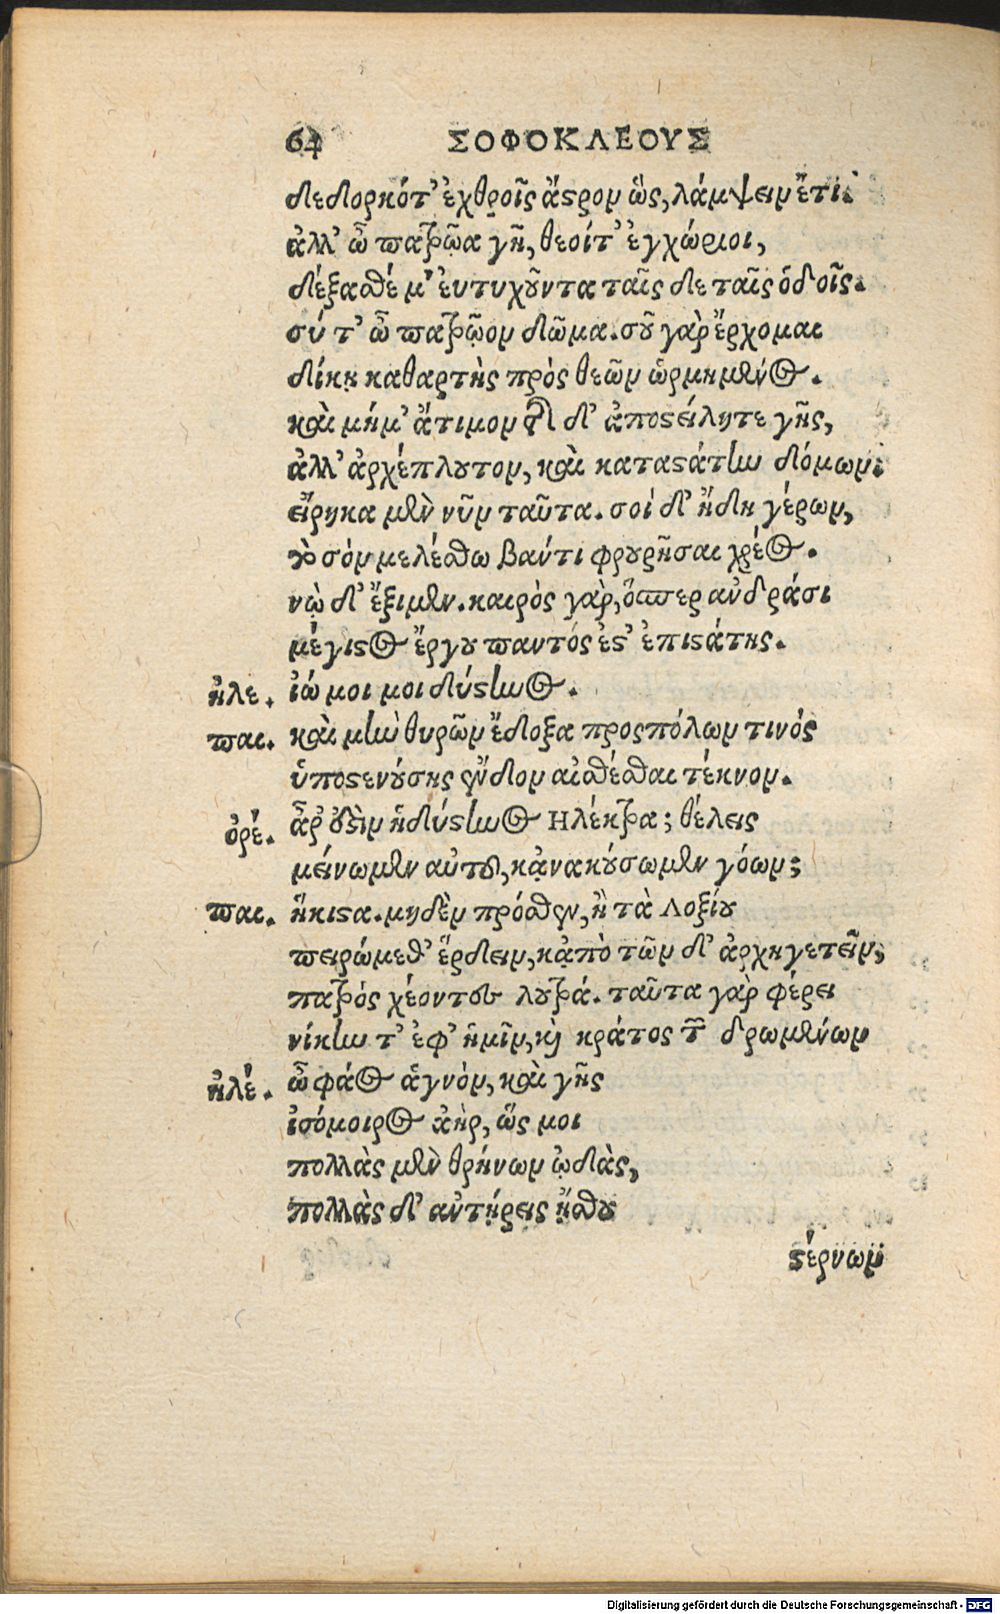 64 ΣΟΦΟΚΛΕΟΥΣ
δεδορκότ' ἐχθροῖς ἄστρον ὣς, λάμψειν ἔτι.
ἀλλ' ὦ πατρῴα γῆ, θεοί τ' ἐγχώριοι,
δέξασθέ μ' ἐυτυχοῦντα ταῖς δε ταῖς ὁδοῖς.
σύ τ' ὦ πατρῷον δῶμα. σοῦ γὰρ ἔρχομαι
δίκῃ καθαρτὴς πρὸς θεῶν ὡρμημένος.
καὶ μή μ' ἄτιμον τῆσδ' ἀποστείλητε γῆς,
ἀλλ' ἀρχέπλουτον, καὶ καταστάτην δόμων.
εἴρηκα μὲν νῦν ταῦτα. σοί δ' ἤδη γέρων,
τὸ σὸν μελέσθω βαντι φρουρῆσαι χρέος.
νὼ δ' ἔξιμεν. καιρὸς γὰρ, ὅσπερ ἀνδράσι
μέγιστος ἔργου παντός ἐστ' ἐπιστάτης.
ἠλε. ἰώ μοι μοι δύστηνος.
παι. καὶ μὴν θυρῶν ἔδοξα προσπόλων τινὸς
ὑποστενούσης ἔνδον αἰσθέσθαι τέκνον.
ὀρέ. ἆρ' οὐστὶν ἡ δύστηνος Ηλέκτρα; θέλεις
μείνωμεν αὐτοῦ, κἀνακούσωμεν γόων;
παι. ἥκιστα. μηδὲν πρόσθεν, ἢ τὰ Λοξίου
πειρώμεθ' ἔρδειν, κἀπὸ τῶν δ' ἀρχηγετεῖν,
πατρὸς χέοντες λουτρά. ταῦτα γὰρ φέρει
νίκην τ' ἐφ' ἡμῖν, καὶ κράτος τῶν δρωμένων
ἠλέ. ὦ φάος ἁγνὸν, καὶ γῆς
ἰσόμοιρος ἀὴρ, ὥς μοι
πολλὰς μὲν θρήνων ᾠδὰς,
πολλὰς δ' αὐτήρεις ᾔσθου
στέρνων
Digitalisierung gefördert durch die Deutsche Forschungsgemeinschaft - DFG